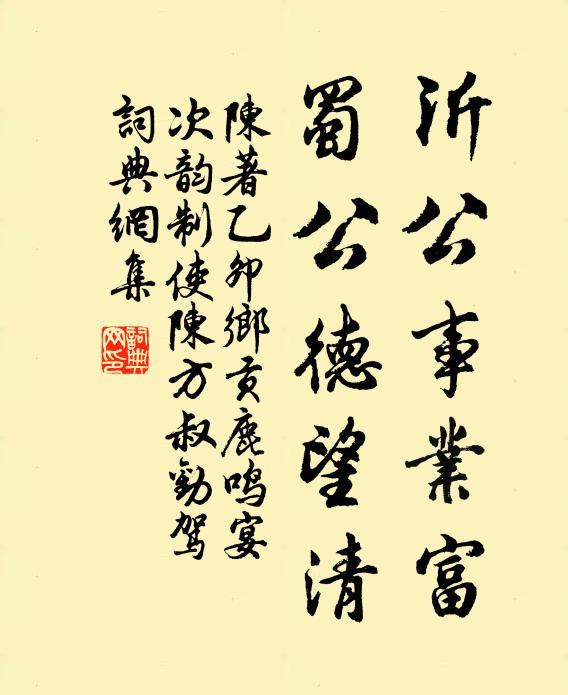 沂公事業富
蜀公德望清
陳著乙卯鄉貢鹿鳴宴
次韵制使陳方叔勸駕
詞典網集
詞典
网印